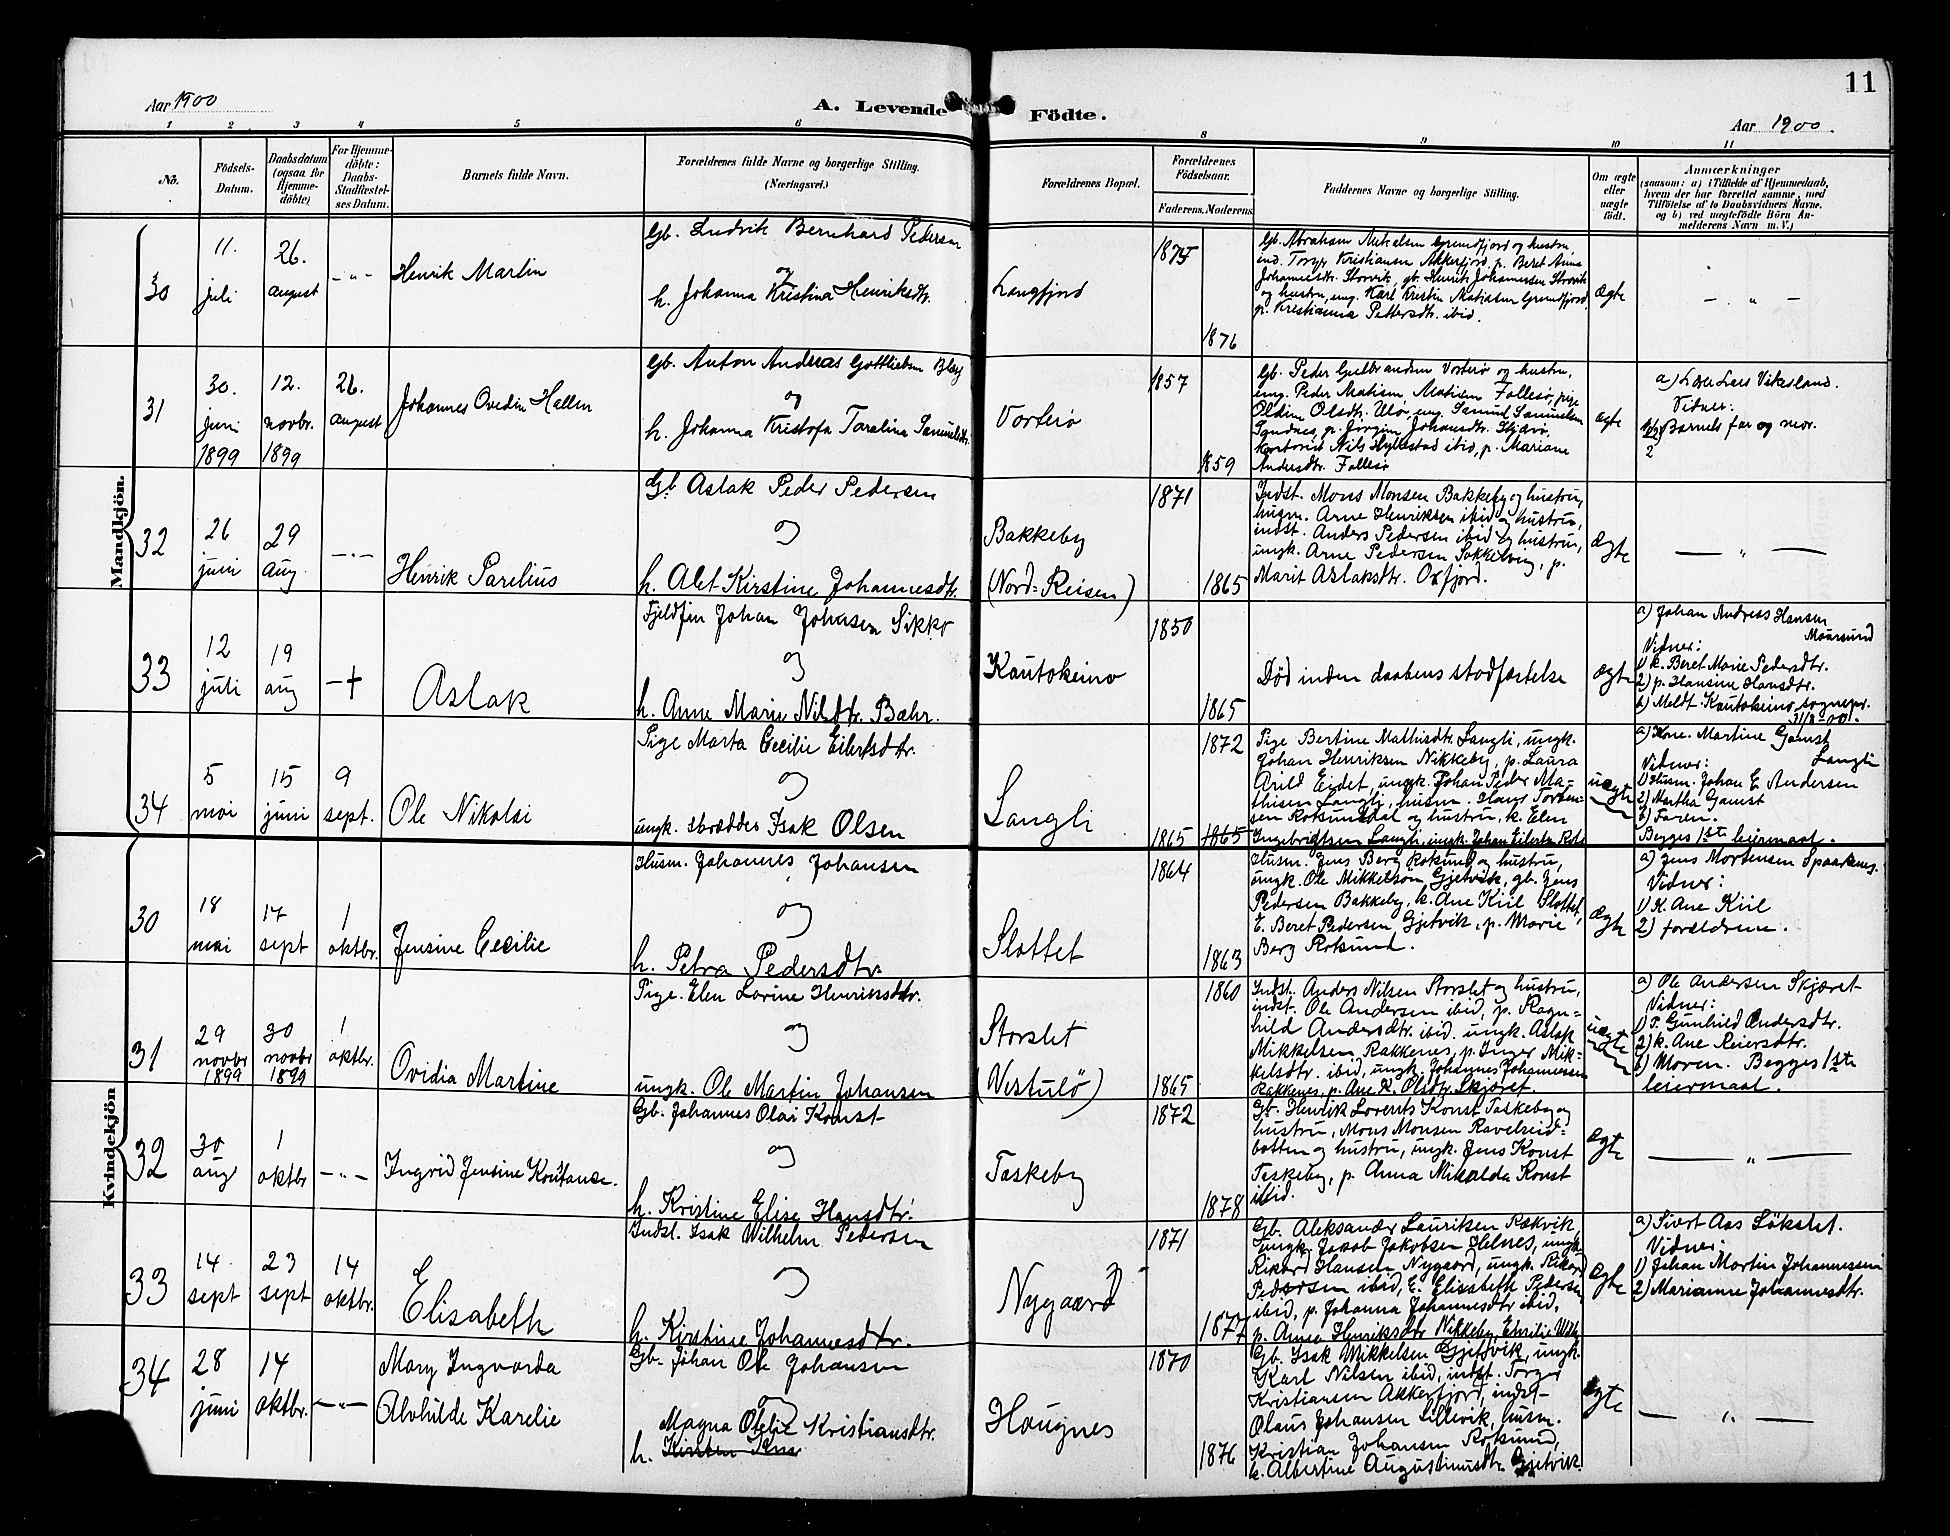 11
Aar 1900
A. Levende Födte.
Aar 1900.
1 2 3 4 5 6 8 9 10 11
No.
Födsels-Datum.
Daabsdatum (ogsaa for Hjemme-döbte)
For Hjemme-döbte: Daabs-Stadfæstel-ses Datum.
Barnets fulde Navn.
Forældrenes fulde Navne og borgerlige Stilling.
(Næringsvei.)
Forældrenes Bopæl.
Forældrenes Födselsaar.
Faderens. Moderens.
Faddernes Navne og borgerlige Stilling.
Om ægte eller uægte födt.
Anmærkninger
(saasom: a) i Tilfælde af Hjemmedaab,
hvem der har forrettet samme, med
Tilföielse af to Daabsvidners Navne,
og b) ved uægtefödte Börn An-
melderens Navn m. V.)
Mandkjön.
30
11. juli
26. august
- " -
Henrik Martin
Gb. Ludvik Bernhard Pedersen
og
h. Johanna Kristina Henriksdtr.
Langfjord
1875
1876
Gb. Abraham Mikalsen Grundfjord og hustru,
ind. Torger Kristiansen Akkerfjord, p. Beret Anna
Johannesdtr. Storvik, gb. Henrik Johannessen Storvik
og hustru, ung. Karl Kristin Matiasen Grundfjord,
p. Kristianna Pettersdtr. ibid.
Ægte
- " -
31
30. juni 1899
12. novbr. 1899
26. august
Johannes Ovedin Hallen
Gb. Anton Andreas Gottliebsen
og
h. Johanna Kristofa Taralina Samuelsdtr.
Vorterø
1857
1859
Gb. Peder Gulbrandsen Vorterø og hustru,
ung. Peder Matisen, Matisen Follesø, pige
Oldine Olsdtr. Ulø, ung. Samuel Samuelsen
Sandnes, p. Jørgine Johansdtr. Skjærø,
kontorist Nils Hyllestad ibid, p. Mariane
Andersdtr. Follesø
ægte
a) Lærer Lars Viksland.
Vidner:
Barnets far og mor.
32
26 juni
29 aug.
- " -
Henrik Parelius
Gb Aslak Peder Pedersen
og
h. Alet Kirstine Johannesdtr.
Bakkeby
(Nord-Reisen)
1871
1865
Indst. Mons Monsen Bakkeby og hustru,
husm. Arne Henriksen ibid og hustru,
indst. Anders Pedersen ibid og hustru,
ungk. Arne Pedersen Sokkelvig, p.
Marit Aslaksdtr. Oxfjord.
Ægte
- " -
33
12 juli
19 aug
- +
Aslak
Fjeldfin Johan Johnsen Sikko
og
h. Anne Marie Nilsdtr. Bahr.
Kautokeino
1850
1865
Död inden daabens stadfæstelse
Ægte
a) Johan Andreas Hansen
Maursund
Vidner:
1) k. Beret Marie Pedersdtr.
2) p. Hansine Hansdtr.
b) Meldt Kautokeino sognepr.
31/8-00.
34
5 mai
15 juni
9 sept.
Ole Nikolai
Pige Marta Cecilie Eilertsdtr.
og
ungk. skrædder Isak Olsen
Langli
1872
1865
1865
Pige Bertine Mathisdtr. Langli, ungk.
Johan Henriksen Nikkeby, p. Laura
Arild Eidet, ungk. Johan Peder Ma-
thisen Langli, husm. Hans Torben-
sen Rotsunddal og hustru, k. Elen
Ingebrigtsen Langli, ungk. Johan Eilertsen
uægte
a) Kone Martine Gamst
Langli
Vidner:
1) Husm. Johan E. Andersen
2) Martha Gamst
b) Faren.
Begges 1ste leiermaal.
Kvindekjön
30
18 mai
17 sept
1 oktbr.
Jensine Cecilie
Husm. Johannes Johansen
og
h. Petra Pedersdtr.
Slottet
1864
1863
Husm. Jens Berg Rotsund og hustru,
ungk. Ole Mikkelsen Gjøvik, gb. Jens
Pedersen Bakkeby, k. Ane Kiil Slottet,
E. Beret Pedersen Gjøvik, p. Marie
Berg Rotsund.
Ægte
a) Jens Mortensen Spaaknes.
Vidner:
1) K. Ane Kiil
2) forældrene.
31
29 novbr 1899
30 novbr 1899
1 oktbr.
Ovidia Martine
Pige Elen Lovine Henriksdtr.
og
ungk. Ole Martin Johansen
Storslet
(Vestulö)
1860
1865
Indst. Anders Nilsen Storslet og hustru,
indst. Ole Andersen ibid, p. Ragn-
hild Andersdtr. ibid. ungk. Aslak
Mikkelsen Rakkenes, p. Inger Mik-
kelsdtr. ibid, ungk. Johannes Johannessen
Rakkenes, p. Ane K. Olsdtr. Skjæret.
uægte
a) Ole Andersen Skjæret
Vidner:
1) P. Gunhild Andersdtr.
2) k. Ane Reiersdtr.
b) Moren. Begges 1ste
leiermaal.
32
30 aug
1 oktbr
- " -
Ingrid Jensine Konstanse.
Gb. Johannes Olai Konst
og
h. Kristine Elise Hansdtr.
Taskeby
1872
1878
Gb. Henrik Lorents Konst Taskeby og
hustru, Mons Monsen Ravelseid-
botten og hustru, ungk. Jens Konst
Taskeby, p. Anna Mikalda Konst
ibid.
Ægte
- " -
33
14 sept
23 sept
14 oktbr.
Elisabeth
Indst. Isak Wilhelm Pedersen
og
h. Kirstine Johannesdtr.
Nygaard
1871
1877
Gb. Aleksander Lauritsen Rækvik,
ungk. Jakob Jakobsen Helnes, ungk
Rikard Hansen Nygaard, ungk. Rikard
Pedersen ibid, E. Elisabeth Pedersen
ibid, p. Johanna Johannesdtr ibid,
p. Anna Henriksdtr Nikkeby, Emilie
Ægte
a) Sivert Aas Lökslet.
Vidner:
1) Johan Martin Johannessen
2) Marianne Johannesdtr.
34
28 juni
14 oktbr.
- " -
Mary Ingvarda
Alvhilde Karelie
Gb. Johan Ole Johansen
og
Magna Otelie Kristiansdtr.
h.
Haugnes
1870
1876
Gb. Isak Mikkelsen Gjøvik, ungk.
Karl Nilsen ibid, indst. Torger
Kristiansen Akkerfjord, indst-
Olaus Johansen Lillevik, husm.
Kristian Johansen Rotsund,
k. Albertine Augustinusdtr. Gjøvik.
Ægte
- " -